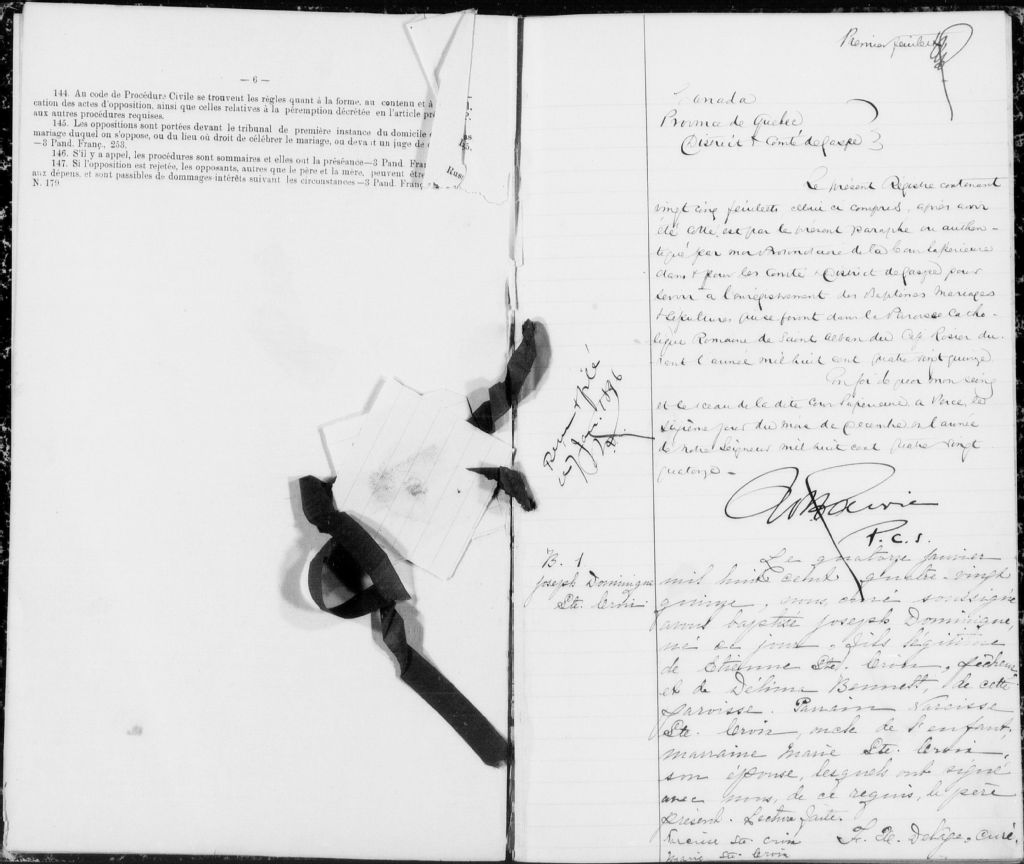 — 6 —
144. Au code de Procédure Civile se trouvent les règles quant à la forme, au contenu et à
cation des actes d'opposition, ainsi que celles relatives à la péremption décrétée en l'article
aux autres procédures requises.
145. Les oppositions sont portées devant le tribunal de première instance du domicile
mariage duquel on s'oppose, ou du lieu où droit de célébrer le mariage, ou devant un juge de
—3 Pand. Franç., 253.
146. S'il y a appel, les procédures sont sommaires et elles ont la préséance—3 Pand.
147. Si l'opposition est rejetée, les opposants, autres que le père et la mère, peuvent être
aux dépens, et sont passibles de dommages-intérêts suivant les circonstances—3 Pand. Franç
N. 179
Premier feuillet
Canada
Province de Quebec
District & Comté de Gaspé
Le présent Registre contenant
vingt cinq feuillets celui ci compris, après avoir
été cotté est par le présent paraphe ou authen-
tiqué par moi Protonotaire de la Cour Superieure
dans & pour les Comté & District de Gaspé pour
servir a l'enregistrement des Baptêmes Mariages
& Sepultures qui se feront dans la Paroisse Catho-
lique Romaine de Saint Alban du Cap Rosier du-
rant l'année mil huit cent quatre vingt quinze
En foi de quoi mon seing
et le sceau de la dite Cour Superieure a Percé, le
sixième jour du mois de Decembre en l'année
de Notre Seigneur mil huit cent quatre vingt
quatorze -
P. C. S.
Reçu & filé
ce 7 Janv. 1896
B. 1
Joseph Dominique
Ste. Croix
Le quatorze janvier
mil huit cent quatre-vingt
quinze, nous, curé soussigné
avons baptisé Joseph Dominique,
né ce jour, fils légitime
de Etienne Ste. Croix, pêcheur
et de Délima Bennett, de cette
paroisse. Parrain Narcisse
Ste. Croix, oncle de l'enfant,
marraine Marie Ste. Croix,
son épouse, lesquels ont signé
avec nous, de ce requis, le père
présent. Lecture faite.
Narcisse Ste. Croix
Marie Ste. Croix
curé